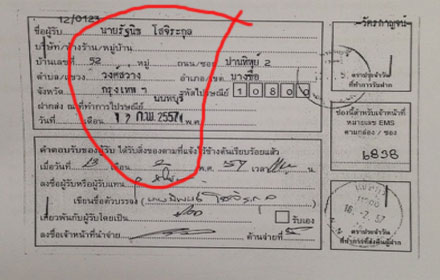 12/0123
ชื่อผู้รับ นายรัฐนิธ โสจิระกุล
บริษัท/ห้างร้าน/หมู่บ้าน
บ้านเลขที่ 52 หมู่ ถนน/ซอย ปานทิพย์ 2
ตำบล/แขวง วงศ์สว่าง อำเภอ/เขต บางซื่อ
จังหวัด กรุงเทพฯ รหัสไปรษณีย์ 10800
ฝากส่ง ณ ที่ทำการไปรษณีย์ นนทบุรี
วันที่ 12 ก.พ. 2557 เดือน พ.ศ.
ตราประจำวัน
ที่ทำการรับฝาก
ช่องนี้สำหรับเจ้าหน้าที่
หมายเลข EMS
ตามกล่อง / ซอง
6838
คำตอบรับของผู้รับ ได้รับสิ่งของตามที่แจ้งไว้ข้างต้นเรียบร้อยแล้ว
เมื่อวันที่ 13 เดือน 2 พ.ศ. 57 เวลา น.
ลงชื่อผู้รับหรือผู้รับแทน
เขียนชื่อตัวบรรจง
เกี่ยวพันกับผู้รับโดยเป็น รับเอง
ลงชื่อเจ้าหน้าที่นำจ่าย ด้านจ่ายที่
ตราประจำวัน
ที่ทำการที่ส่งคืนผู้ฝาก